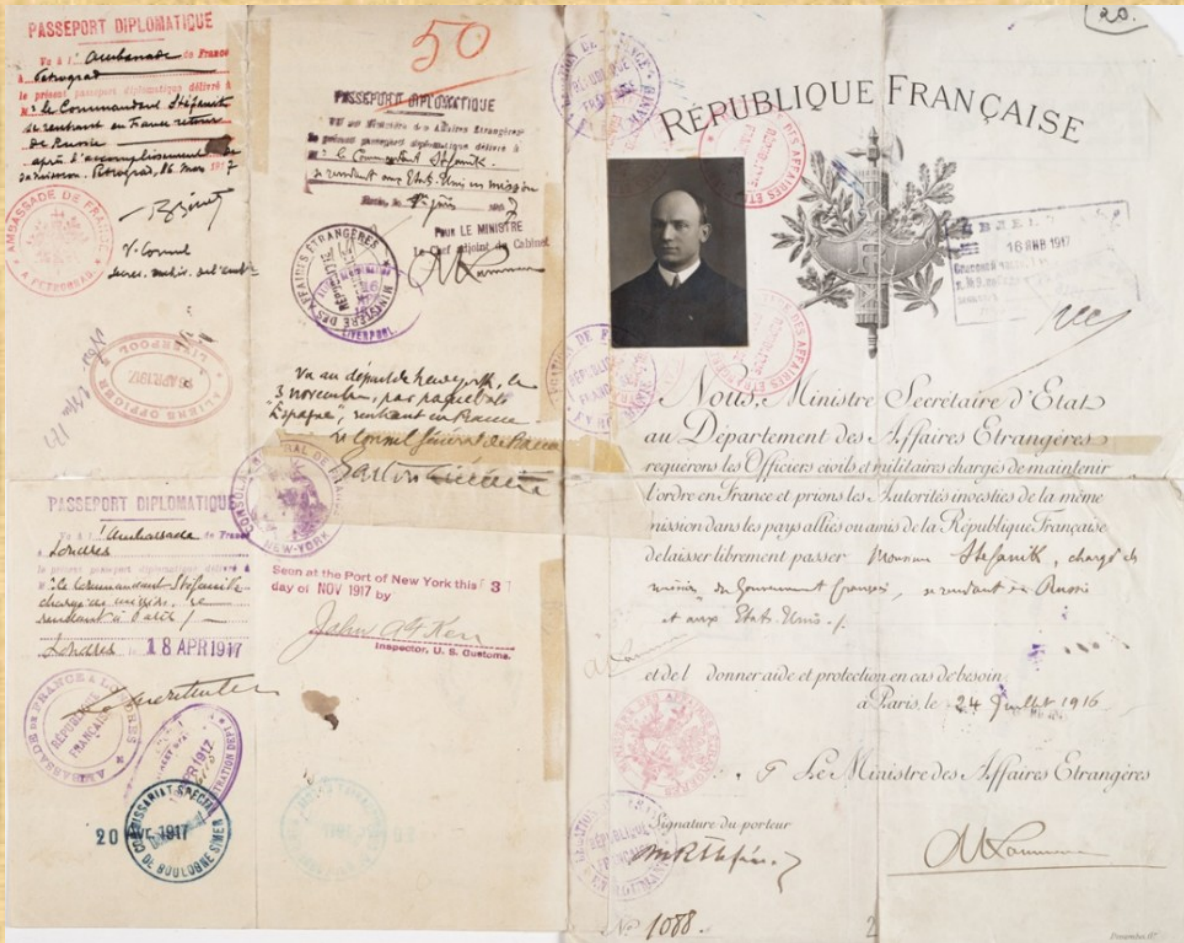 PASSEPORT DIPLOMATIQUE
Vu à l'Ambassade de France
à Petrograd
le présent passeport diplomatique délivré à
Mr le Commandant Stéfanik
se rendant en France retour
de Russie
après l'accomplissement de
sa mission. Petrograd, 16. Mars 1917
AMBASSADE DE FRANCE
A PETROGRAD
ALIENS OFFICER
APR 1917
LIVERPOOL
PASSEPORT DIPLOMATIQUE
Vu à l'Ambassade de France
à Londres
le présent passeport diplomatique délivré à
Mr le Commandant Stéfanik
chargé de mission, se
rendant à Paris
Londres le 18 APR 1917
AMBASSADE DE FRANCE A LONDRES
RÉPUBLIQUE FRANÇAISE
APR 1917
20 AVR 1917
COMMISSARIAT SPECIAL
DE BOULOGNE S/MER
50
PASSEPORT DIPLOMATIQUE
VU au Ministère des Affaires Étrangères
le présent passeport diplomatique délivré à
M. le Commandant Stefanik
se rendant aux Etats-Unis en mission
Juin 1917
Pour LE MINISTRE
Le Chef adjoint du Cabinet
MINISTÈRE DES AFFAIRES ÉTRANGÈRES
LIVERPOOL
Vu au départ de New York, le
3 novembre, par paquebot
"Espagne", rentrant en France
Le Consul Général de France
CONSULAT GÉNÉRAL DE FRANCE
NEW-YORK
Seen at the Port of New York this 3
day of NOV 1917 by
Inspector, U. S. Customs.
20.
RÉPUBLIQUE FRANÇAISE
16 ЯНВ 1917
Nous, Ministre Secrétaire d'Etat
au Département des Affaires Etrangères
requérons les Officiers civils et militaires chargés de maintenir
l'ordre en France et prions les Autorités investies de la même
mission dans les pays alliés ou amis de la République Française
de laisser librement passer Monsieur Stefanik, chargé de
mission du Gouvernement français, se rendant en Russie
et aux Etats-Unis./.
et de l donner aide et protection en cas de besoin
à Paris, le 24 Juillet 1916
Le Ministre des Affaires Etrangères
Signature du porteur
LÉGATION DE FRANCE
RÉPUBLIQUE FRANÇAISE
EN ROUMANIE
No 1088.
2